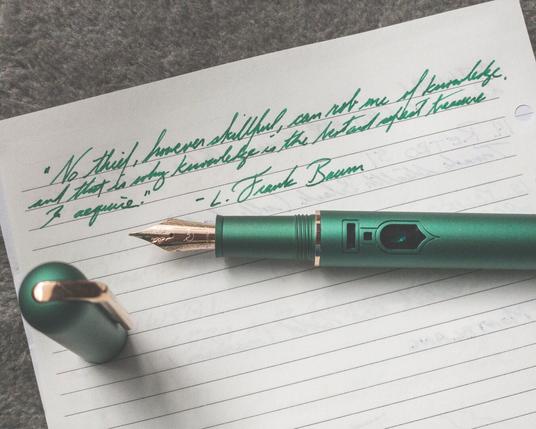 "No thief, however skillful, can rob me of knowledge,
and that is why knowledge is the best and safest treasure
to acquire."
- L. Frank Baum